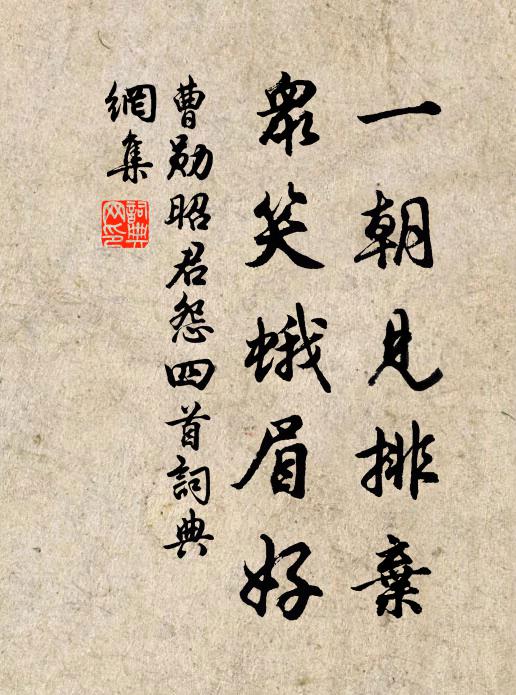 一朝見排棄
眾笑蛾眉好
曹勛昭君怨四首詞典
網集
詞典網印